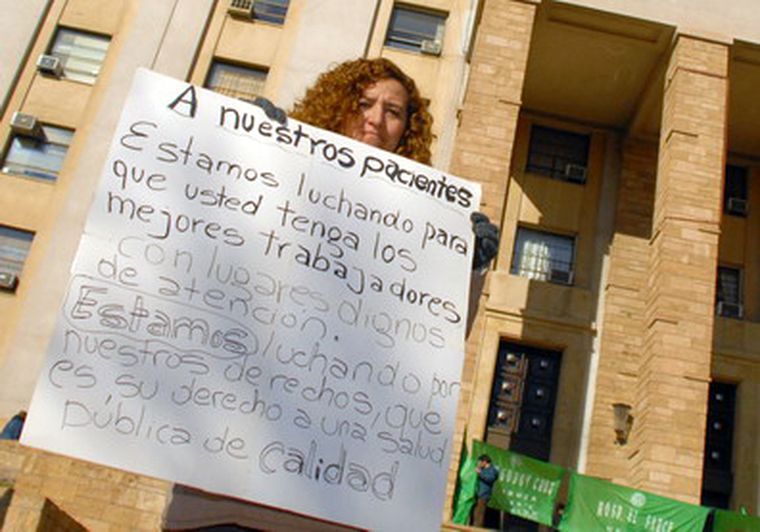 A nuestros pacientes
Estamos luchando para
que usted tenga los
mejores trabajadores
con lugares dignos
de atención.
Estamos luchando por
nuestros derechos, que
es su derecho a una salud
pública de calidad